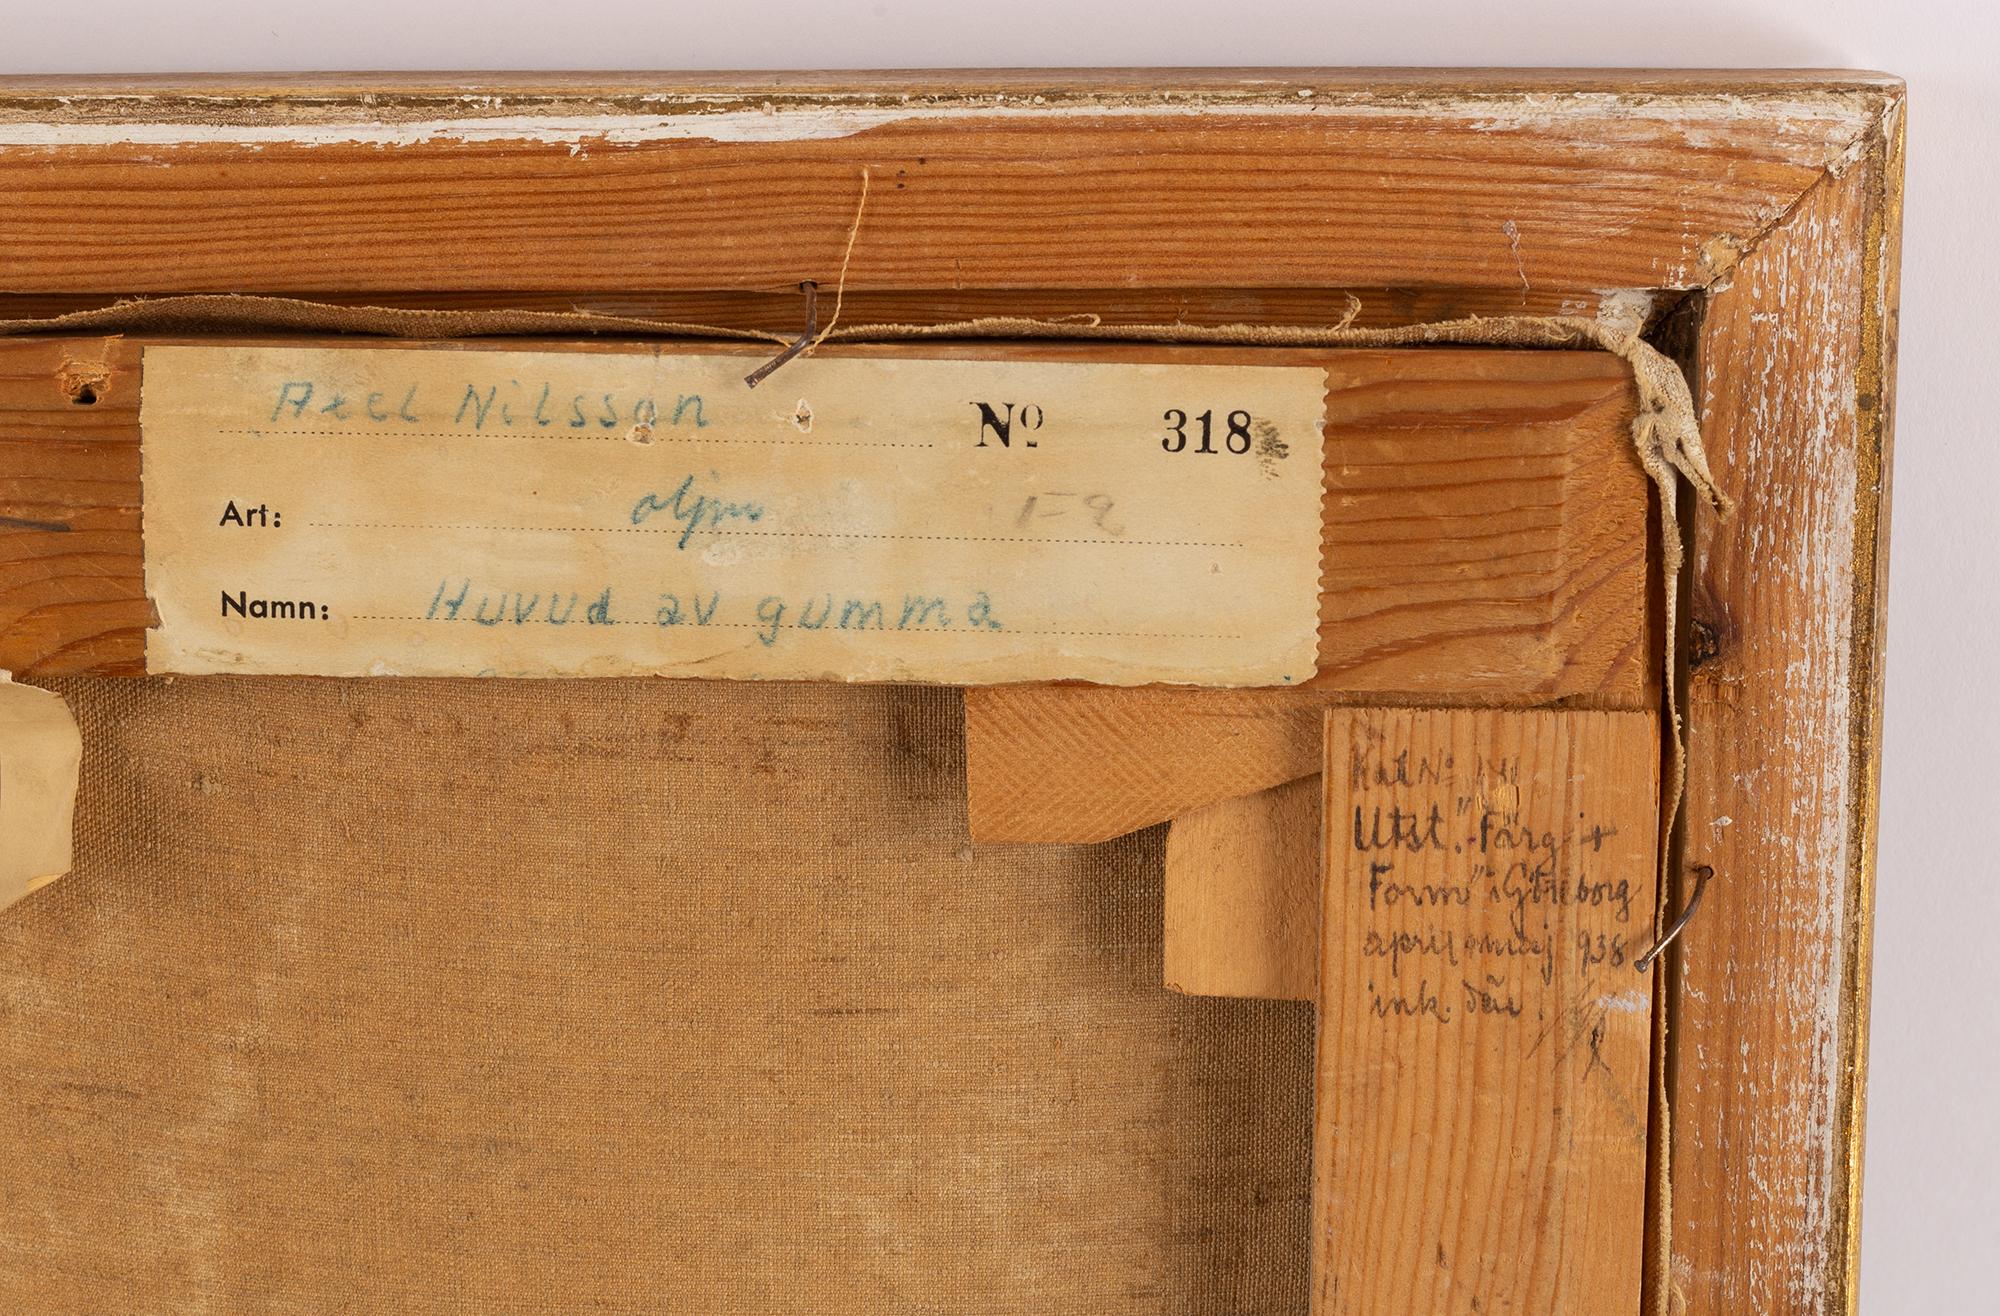 Axel Nilsson Nº 318
Art: olja
Namn: Huvud av gumma
Kat Nº
Utst. "Färg +
Form" i Göteborg
april maj 938
ink.